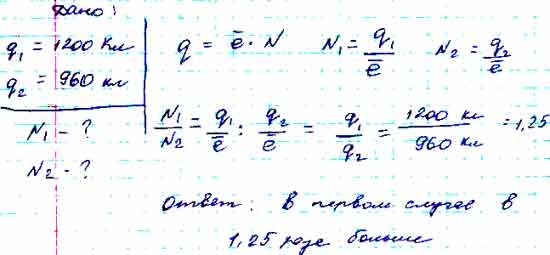 Дано:
q₁ = 1200 Кл
q₂ = 960 кл
N₁ - ?
N₂ - ?
q = ē · N   N₁ = q₁/ē   N₂ = q₂/ē
N₁/N₂ = q₁/ē : q₂/ē = q₁/q₂ = 1200 кл/960 кл = 1,25
Ответ: В первом случае в
1,25 раза больше